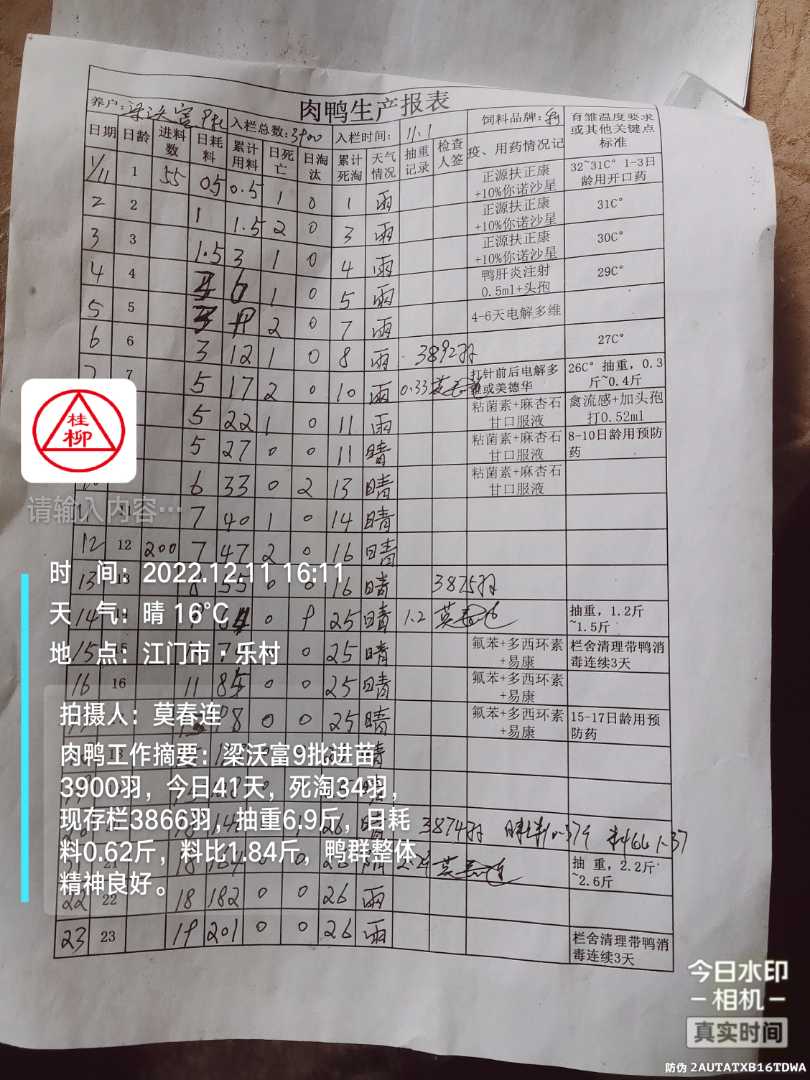 肉鸭生产报表
养户: 梁沃富9批 入栏总数: 3900 入栏时间: 11.1 饲料品牌:
日期 日龄 进料数 日耗料 累计用料 日死亡 日淘汰 累计死淘 天气情况 抽重记录 检查人签 疫、用药情况记 育雏温度要求或其他关键点标准
1/11 1 55 0.5 0.5 1 0 1 雨 正源扶正康+10%你诺沙星 32~31C° 1-3日龄用开口药
2 2 1 1.5 2 0 3 雨 正源扶正康+10%你诺沙星 31C°
3 3 1.5 3 1 0 4 雨 正源扶正康+10%你诺沙星 30C°
4 4 6 1 0 5 雨 鸭肝炎注射0.5ml+头孢 29C°
5 5 9 2 0 7 雨 4-6天电解多维
6 6 3 12 1 0 8 雨 3892羽 27C°
7 5 17 2 0 10 雨 0.33 打针前后电解多维或美德华 26C° 抽重,0.3斤~0.4斤
5 22 1 0 11 雨 粘菌素+麻杏石甘口服液 禽流感+加头孢打0.52ml
5 27 0 0 11 晴 粘菌素+麻杏石甘口服液 8-10日龄用预防药
6 33 0 2 13 晴 粘菌素+麻杏石甘口服液
7 40 1 0 14 晴
12 12 200 7 47 2 0 16 晴
13 13 8 55 0 0 16 晴 3875羽
14 0 9 25 晴 1.2 莫春连 抽重,1.2斤~1.5斤
15 0 0 25 晴 氟苯+多西环素+易康 栏舍清理带鸭消毒连续3天
16 16 11 85 0 0 25 晴 氟苯+多西环素+易康
98 0 0 25 晴 氟苯+多西环素+易康 15-17日龄用预防药
26 晴 3874羽
21 18 164 0 莫春连 抽重,2.2斤~2.6斤
22 22 18 182 0 0 26 雨
23 23 19 201 0 0 26 雨 栏舍清理带鸭消毒连续3天
桂柳
请输入内容…
时 间: 2022.12.11 16:11
天 气: 晴 16℃
地 点: 江门市·乐村
拍摄人: 莫春连
肉鸭工作摘要: 梁沃富9批进苗
3900羽,今日41天,死淘34羽,
现存栏3866羽,抽重6.9斤,日耗
料0.62斤,料比1.84斤,鸭群整体
精神良好。
今日水印
-相机-
真实时间
防伪 2AUTATXB16TDWA